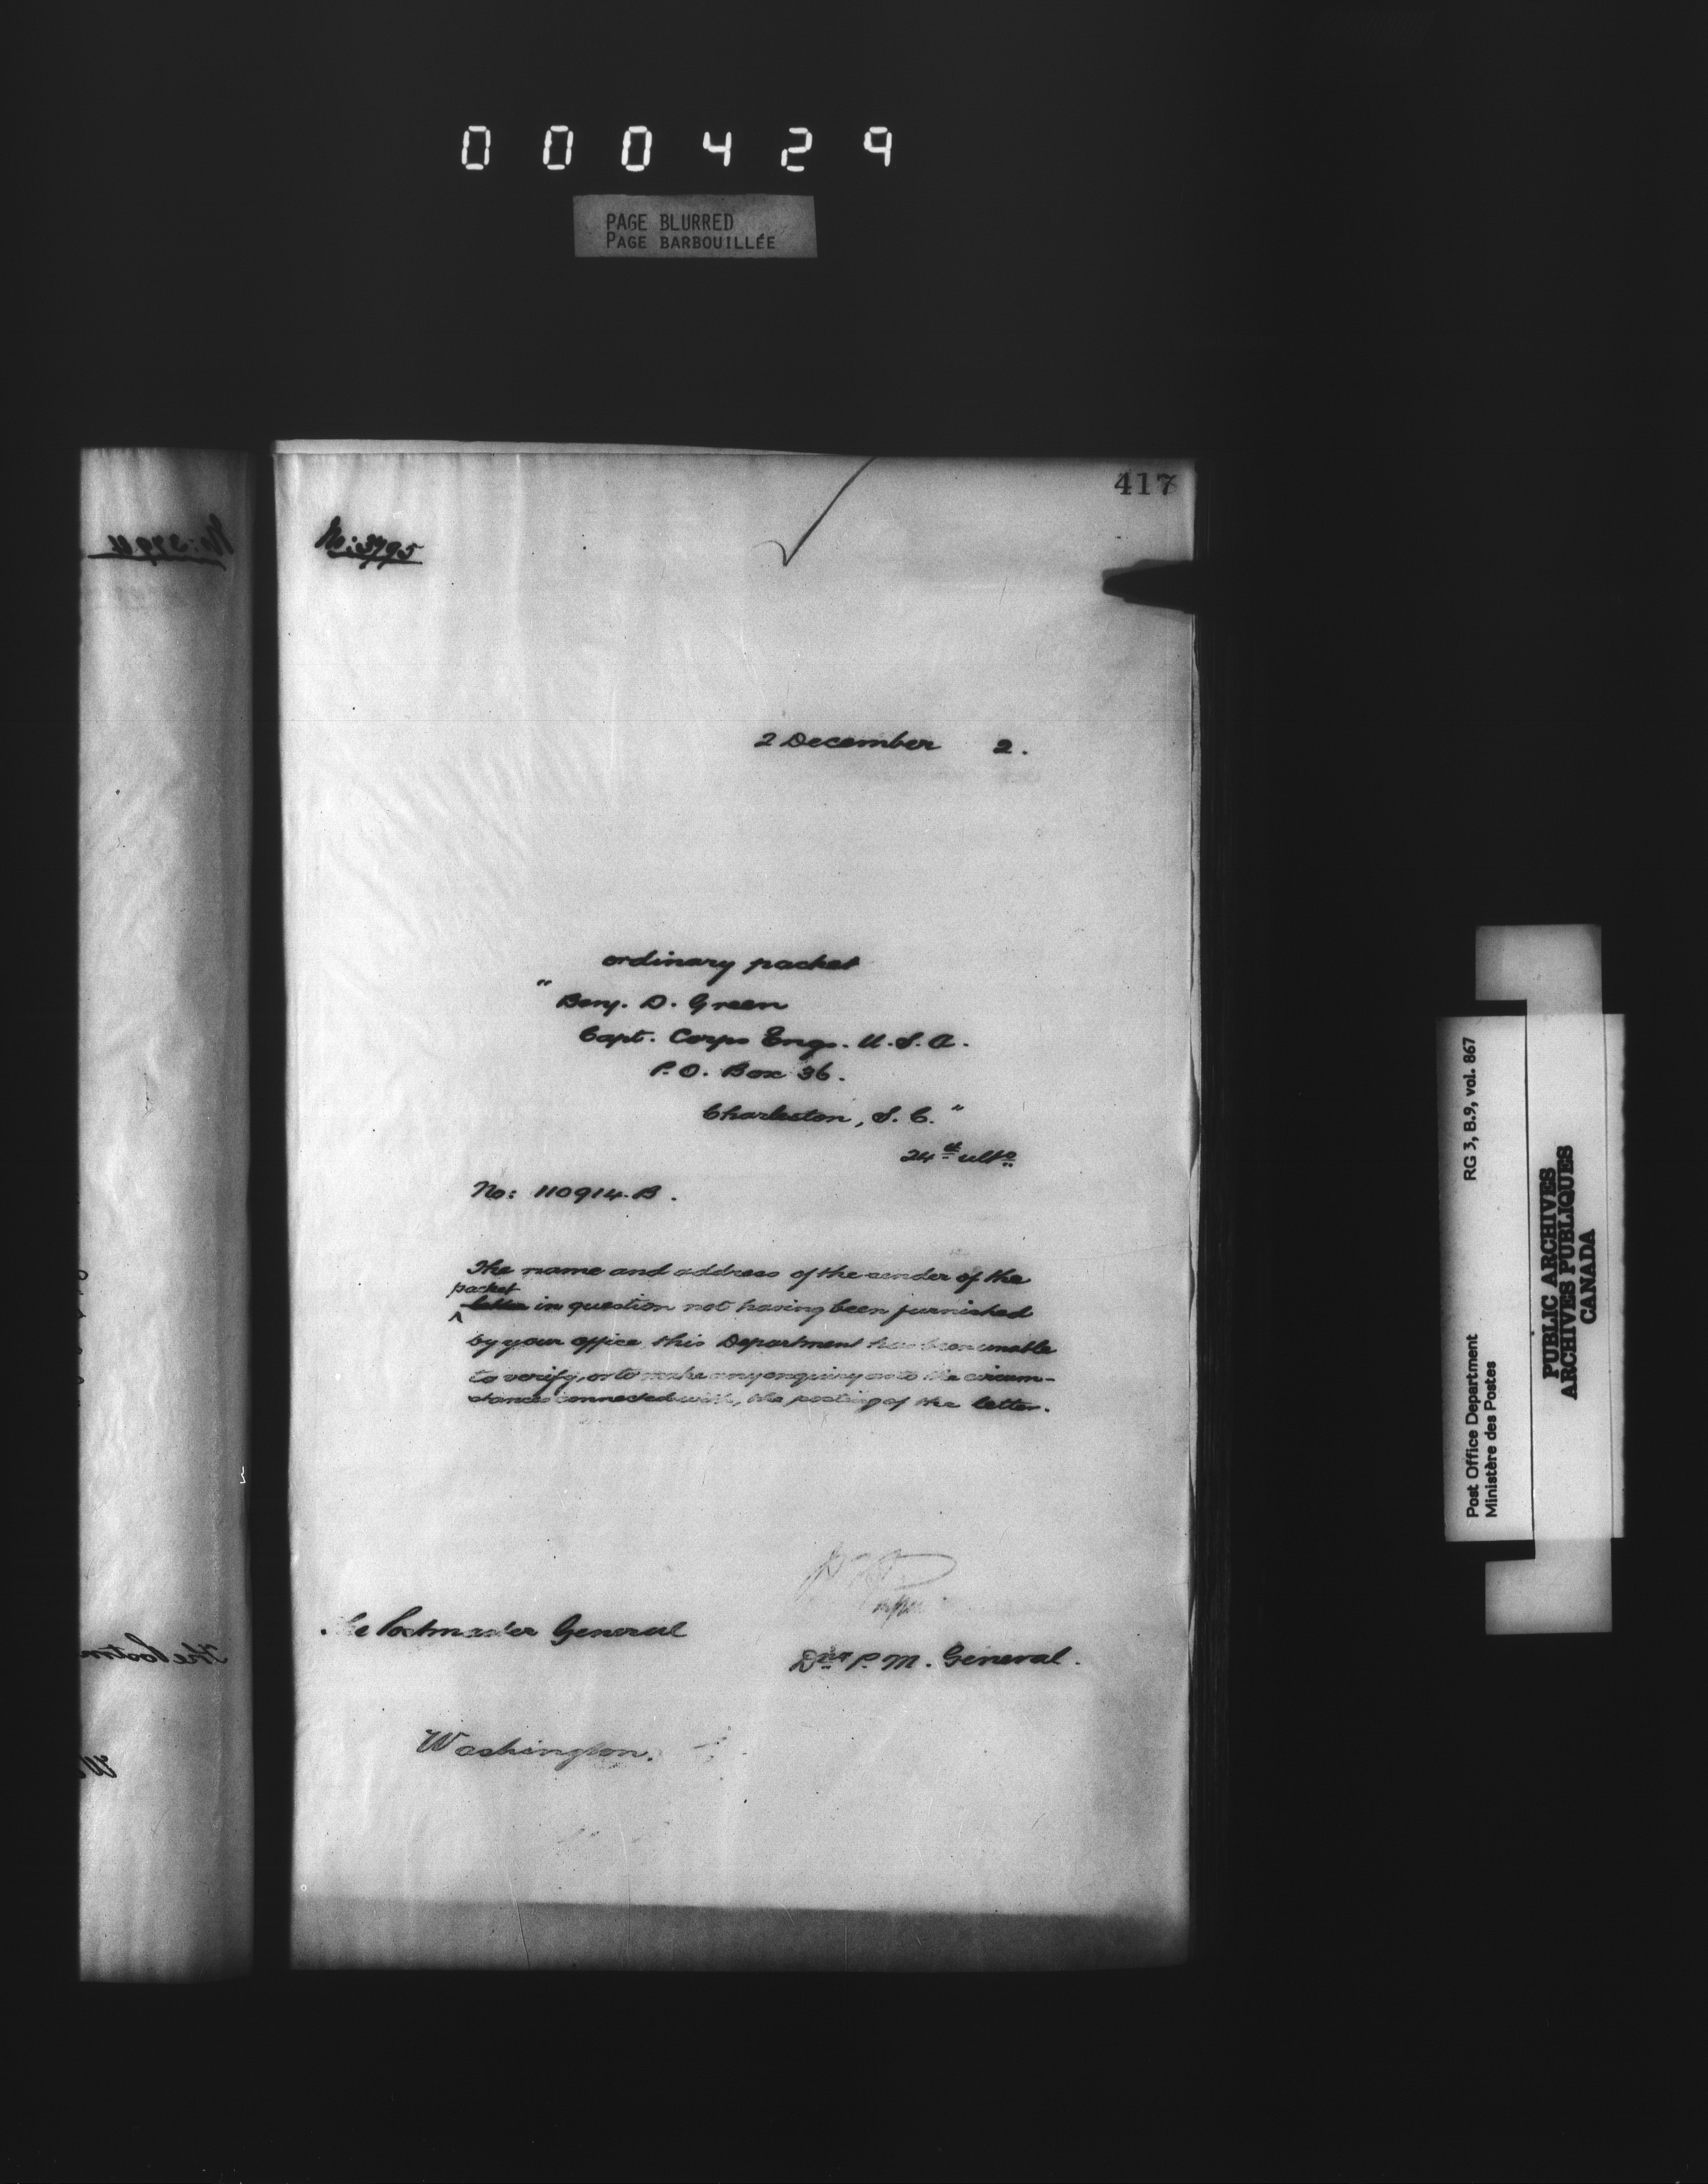 000429
PAGE BLURRED
PAGE BARBOUILLÉE
417
No: 3795
2 December 2.
ordinary packet
"Benj. D. Green
Capt. Corps Engs. U.S.A.
P.O. Box 36.
Charleston, S.C."
24th ulto
No: 110914.B.
The name and address of the sender of the
packet
letter in question not having been furnished
by your office this Department has been unable
to verify, or to make any enquiry as to the circum-
stances connected with, the posting of the letter.
Postmaster General
P.M. General.
Washington.
RG 3, B.9, vol. 867
Post Office Department
Ministère des Postes
PUBLIC ARCHIVES
ARCHIVES PUBLIQUES
CANADA